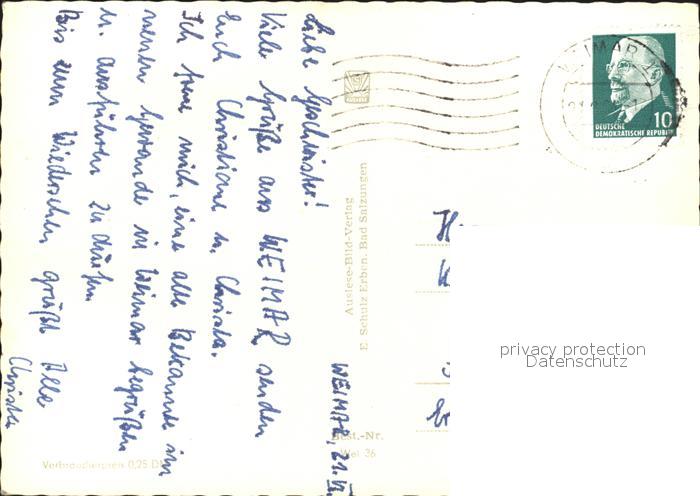 WEIMAR, 21. VI.
Liebe Geschwister!
Viele Grüße aus WEIMAR senden
Euch Christiane u. Christa.
Ich freue mich, eine alte Bekannte in
meinem Gewande in Weimar begrüßen
u. ausführen zu dürfen.
Bis zum Wiedersehen grüßt Alle
Christa
Verbraucherpreis 0,25 DM
Auslese-Bild-Verlag
E. Schulz Erben, Bad Salzungen
Best.-Nr.
Wei 36
WEIMAR
DEUTSCHE
DEMOKRATISCHE REPUBLIK
10
privacy protection
Datenschutz